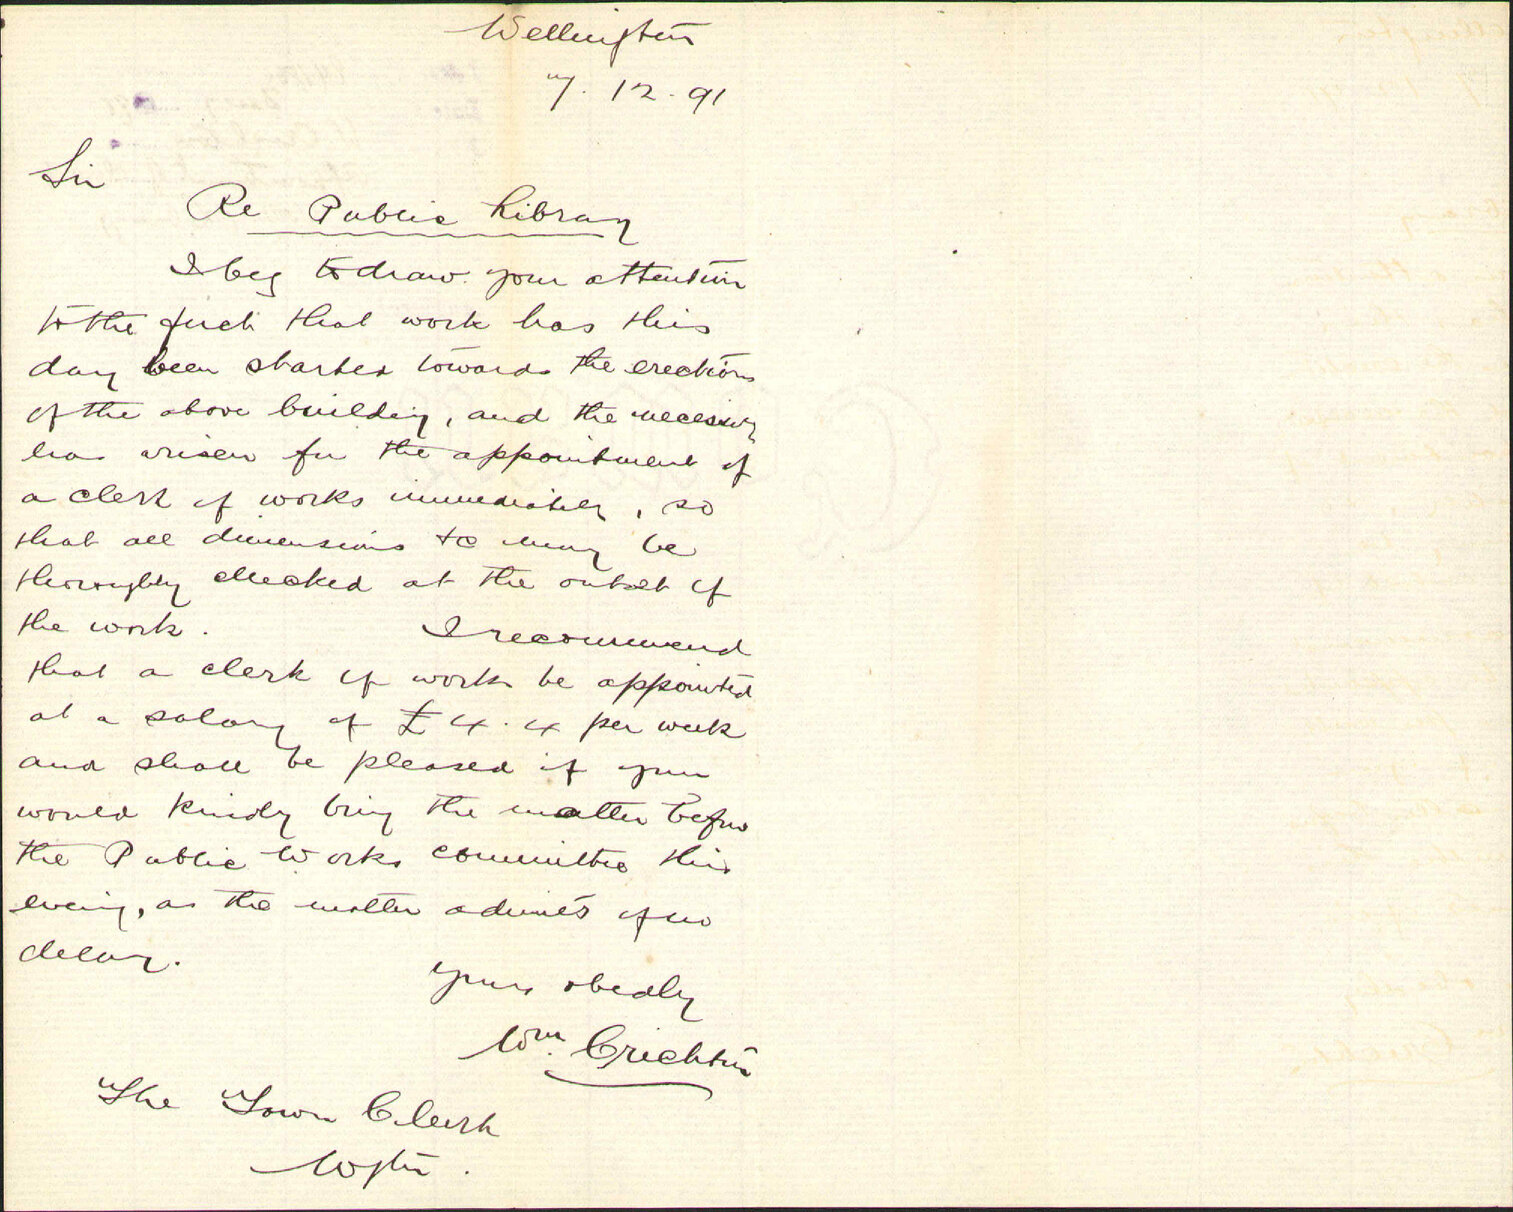 Wellington
7. 12. 91
Sir
Re Public Library
I beg to draw your attention
to the fact that work has this
day been started towards the erection
of the above building, and the necessity
has arisen for the appointment of
a clerk of works immediately, so
that all dimensions &c may be
thoroughly checked at the outset of
the work. I recommend
that a clerk of works be appointed
at a salary of £4.4 per week
and shall be pleased if you
would kindly bring the matter before
the Public Works committee this
evening, as the matter admits of no
delay.
Yours obedly
Wm. Crichton
The Town Clerk
Wgtn.